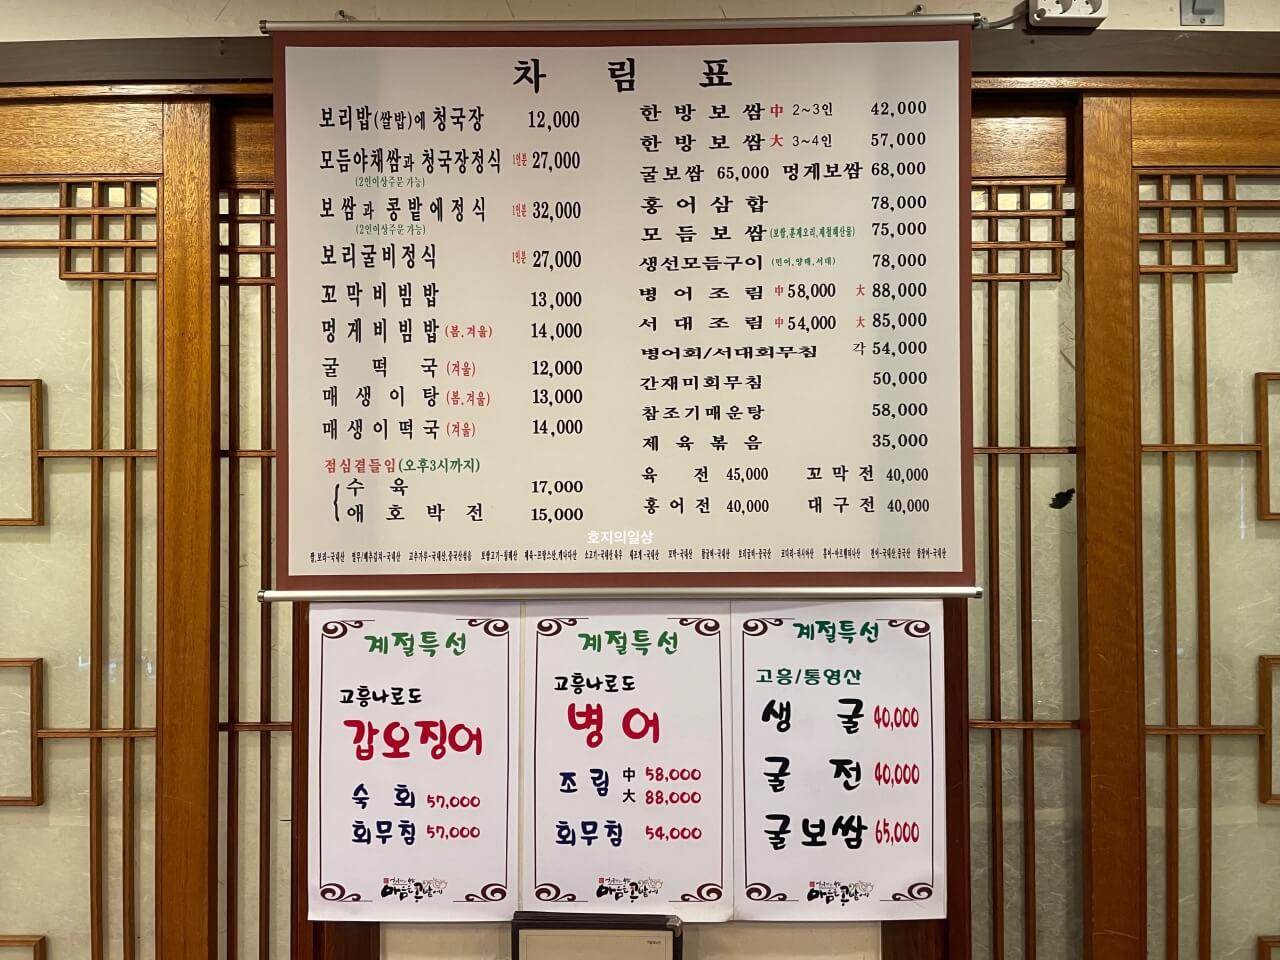 차림표
보리밥(쌀밥)에 청국장 12,000
모듬야채쌈과 청국장정식 1인분 27,000
(2인이상주문 가능)
보쌈과 콩밭에정식 1인분 32,000
(2인이상주문 가능)
보리굴비정식 1인분 27,000
꼬막비빔밥 13,000
멍게비빔밥 (봄.겨울) 14,000
굴떡국 (겨울) 12,000
매생이탕 (봄.겨울) 13,000
매생이떡국 (겨울) 14,000
점심곁들임(오후3시까지)
수육 17,000
애호박전 15,000
한방보쌈 中 2~3인 42,000
한방보쌈 大 3~4인 57,000
굴보쌈 65,000 멍게보쌈 68,000
홍어삼합 78,000
모듬보쌈 (보쌈,훈제오리,제철해산물) 75,000
생선모듬구이 (민어.양태.서대) 78,000
병어조림 中 58,000 大 88,000
서대조림 中 54,000 大 85,000
병어회/서대회무침 각 54,000
간재미회무침 50,000
참조기매운탕 58,000
제육볶음 35,000
육전 45,000 꼬막전 40,000
홍어전 40,000 대구전 40,000
호지의일상
쌀,보리-국내산 열무/배추김치-국내산 고추가루-국내산,중국산섞음 보쌈고기-국내산 제육-프랑스산,캐나다산 소고기-국내산 육우 꼬막-국내산 보리굴비-중국산 코다리-러시아산 홍어-아르헨티나산
계절특선
고흥나로도
갑오징어
숙회 57,000
회무침 57,000
마음은 콩밭에
계절특선
고흥나로도
병어
조림 中 58,000
大 88,000
회무침 54,000
마음은 콩밭에
계절특선
고흥/통영산
생굴 40,000
굴전 40,000
굴보쌈 65,000
마음은 콩밭에